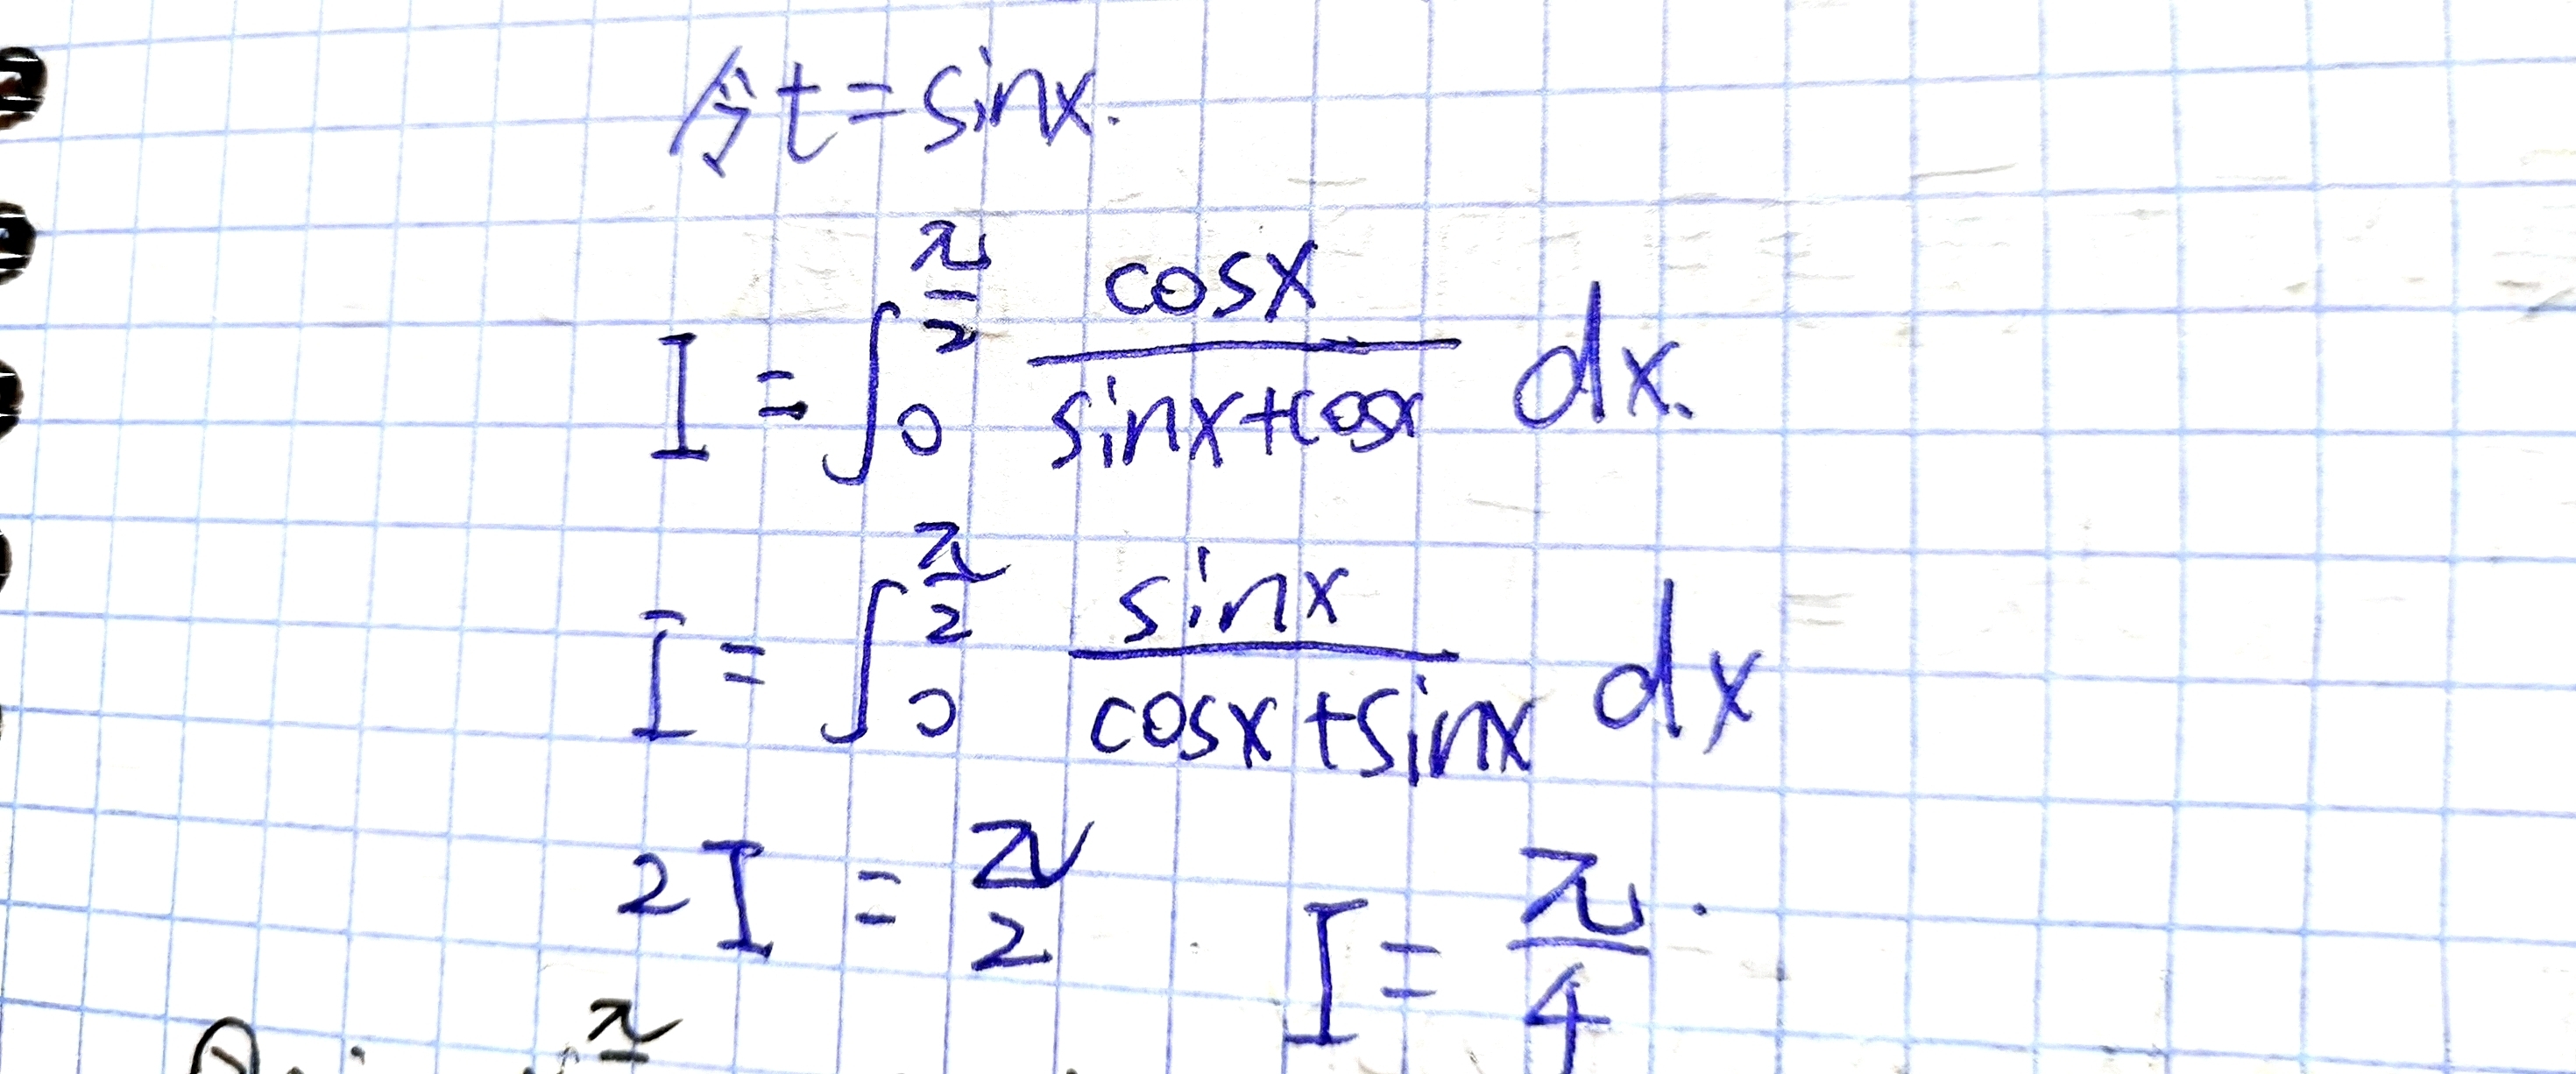 令t=sinx.
I = ∫₀^{π/2} \frac{cosx}{sinx+cosx} dx.
I = ∫₀^{π/2} \frac{sinx}{cosx+sinx} dx
2I = \frac{π}{2} I = \frac{π}{4}.